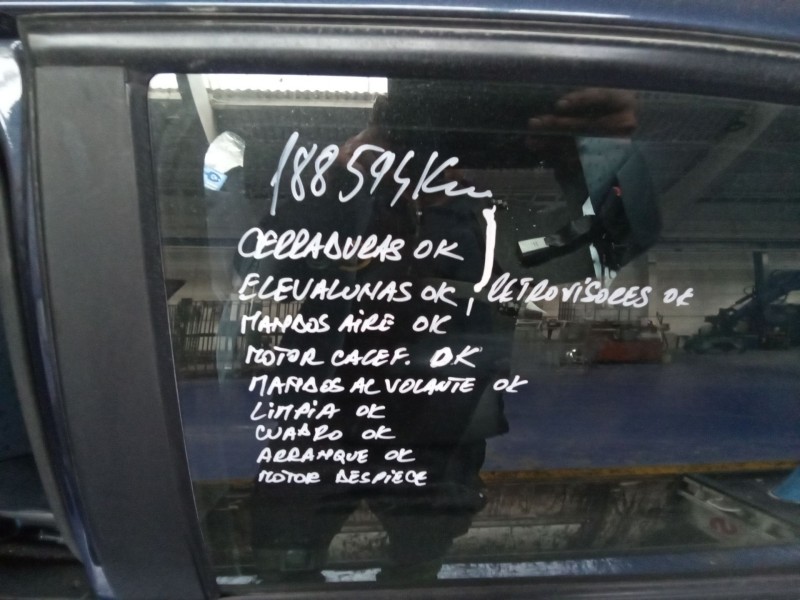 188594 Km
CERRADURAS OK
ELEVALUNAS OK, RETROVISORES OK
MANDOS AIRE OK
MOTOR CALEF. OK
MANDOS AL VOLANTE OK
LIMPIA OK
CUADRO OK
ARRANQUE OK
MOTOR DESPIECE